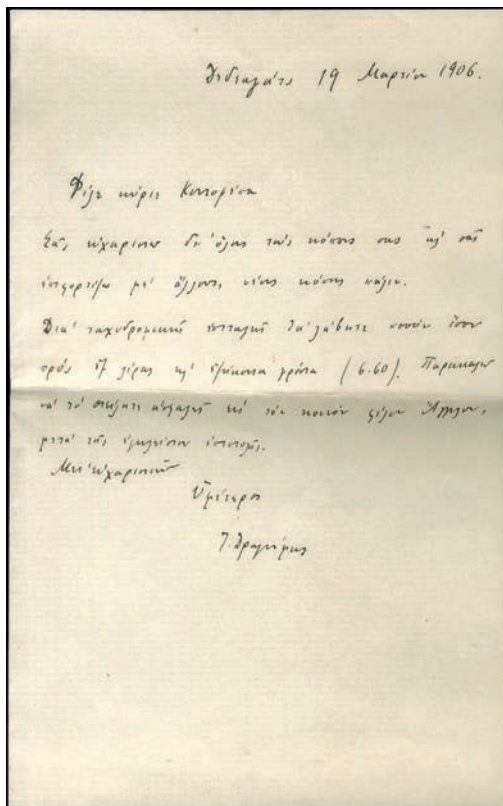 Δεδεαγάτς 19 Μαρτίου 1906.
Φίλε κύριε Κοντορέπα
Σᾶς εὐχαριστῶ δι' ὅλους τοὺς κόπους σας καὶ σᾶς
ἐπιφορτίζω μὲ ἄλλους, νέους κόπους πάλιν.
Διὰ ταχυδρομικῆς ἐπιταγῆς θὰ λάβητε ποσὸν ἴσον
πρὸς ἓξ λίρας καὶ ἑξήκοντα γρόσια (6.60). Παρακαλῶ
νὰ τὸ στείλητε ἀσφαλῶς εἰς τὸν κοινὸν φίλον Ἄγγελον,
μετὰ τῆς ἐγκλείστου ἐπιστολῆς.
Μετ' εὐχαριστιῶν
Ὑμέτερος
Ἴ. Δραγούμης